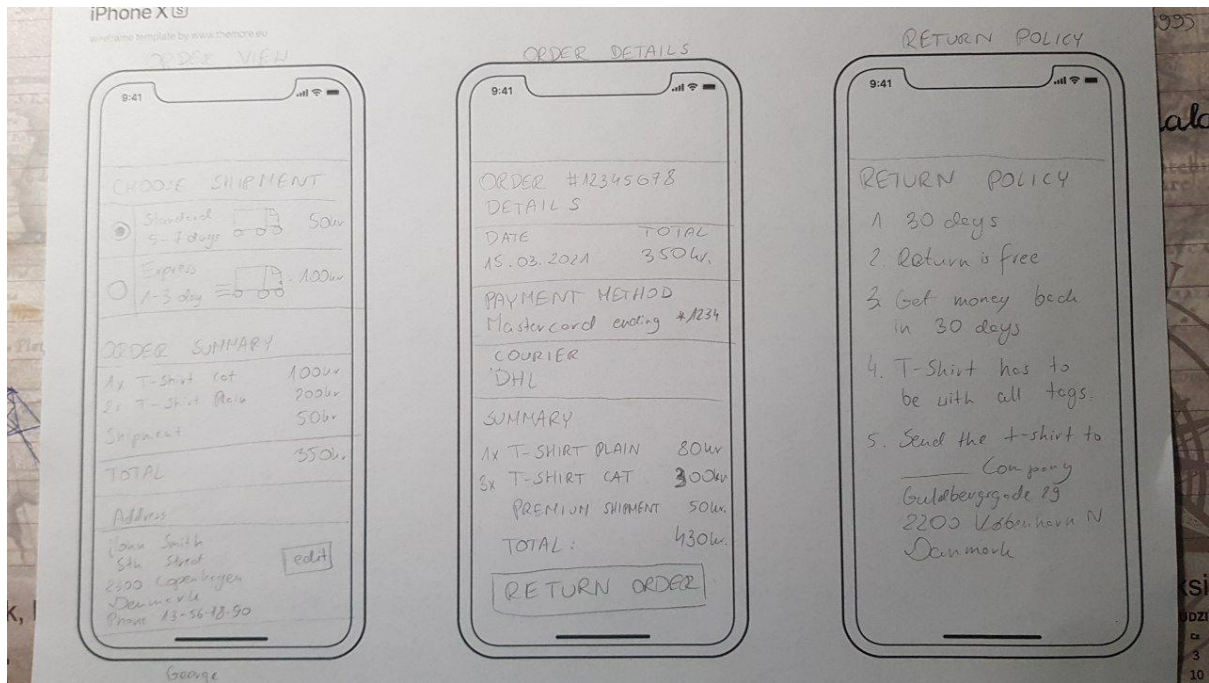 iPhone X S
wireframe template by www.themore.eu
ORDER VIEW
9:41
CHOOSE SHIPMENT
Standard
5-7 days
50kr
Express
1-3 day
100kr
ORDER SUMMARY
1x T-Shirt Cat 100kr
2x T-Shirt Plain 200kr
Shipment 50kr
350kr.
TOTAL
Address
John Smith
5th Street
edit
2300 Copenhagen
Denmark
Phone 13-56-78-90
George
ORDER DETAILS
9:41
ORDER #12345678
DETAILS
DATE TOTAL
15.03.2021 350kr.
PAYMENT METHOD
Mastercard ending *1234
COURIER
DHL
SUMMARY
1x T-SHIRT PLAIN 80kr
3x T-SHIRT CAT 300kr
PREMIUM SHIPMENT 50kr.
TOTAL: 430kr.
RETURN ORDER
RETURN POLICY
9:41
RETURN POLICY
1 30 days
2. Return is free
3. Get money back
in 30 days
4. T-Shirt has to
be with all tags.
5. Send the t-shirt to
______ Company
Guldbergsgade 29
2200 København N
Danmark
995
3
10